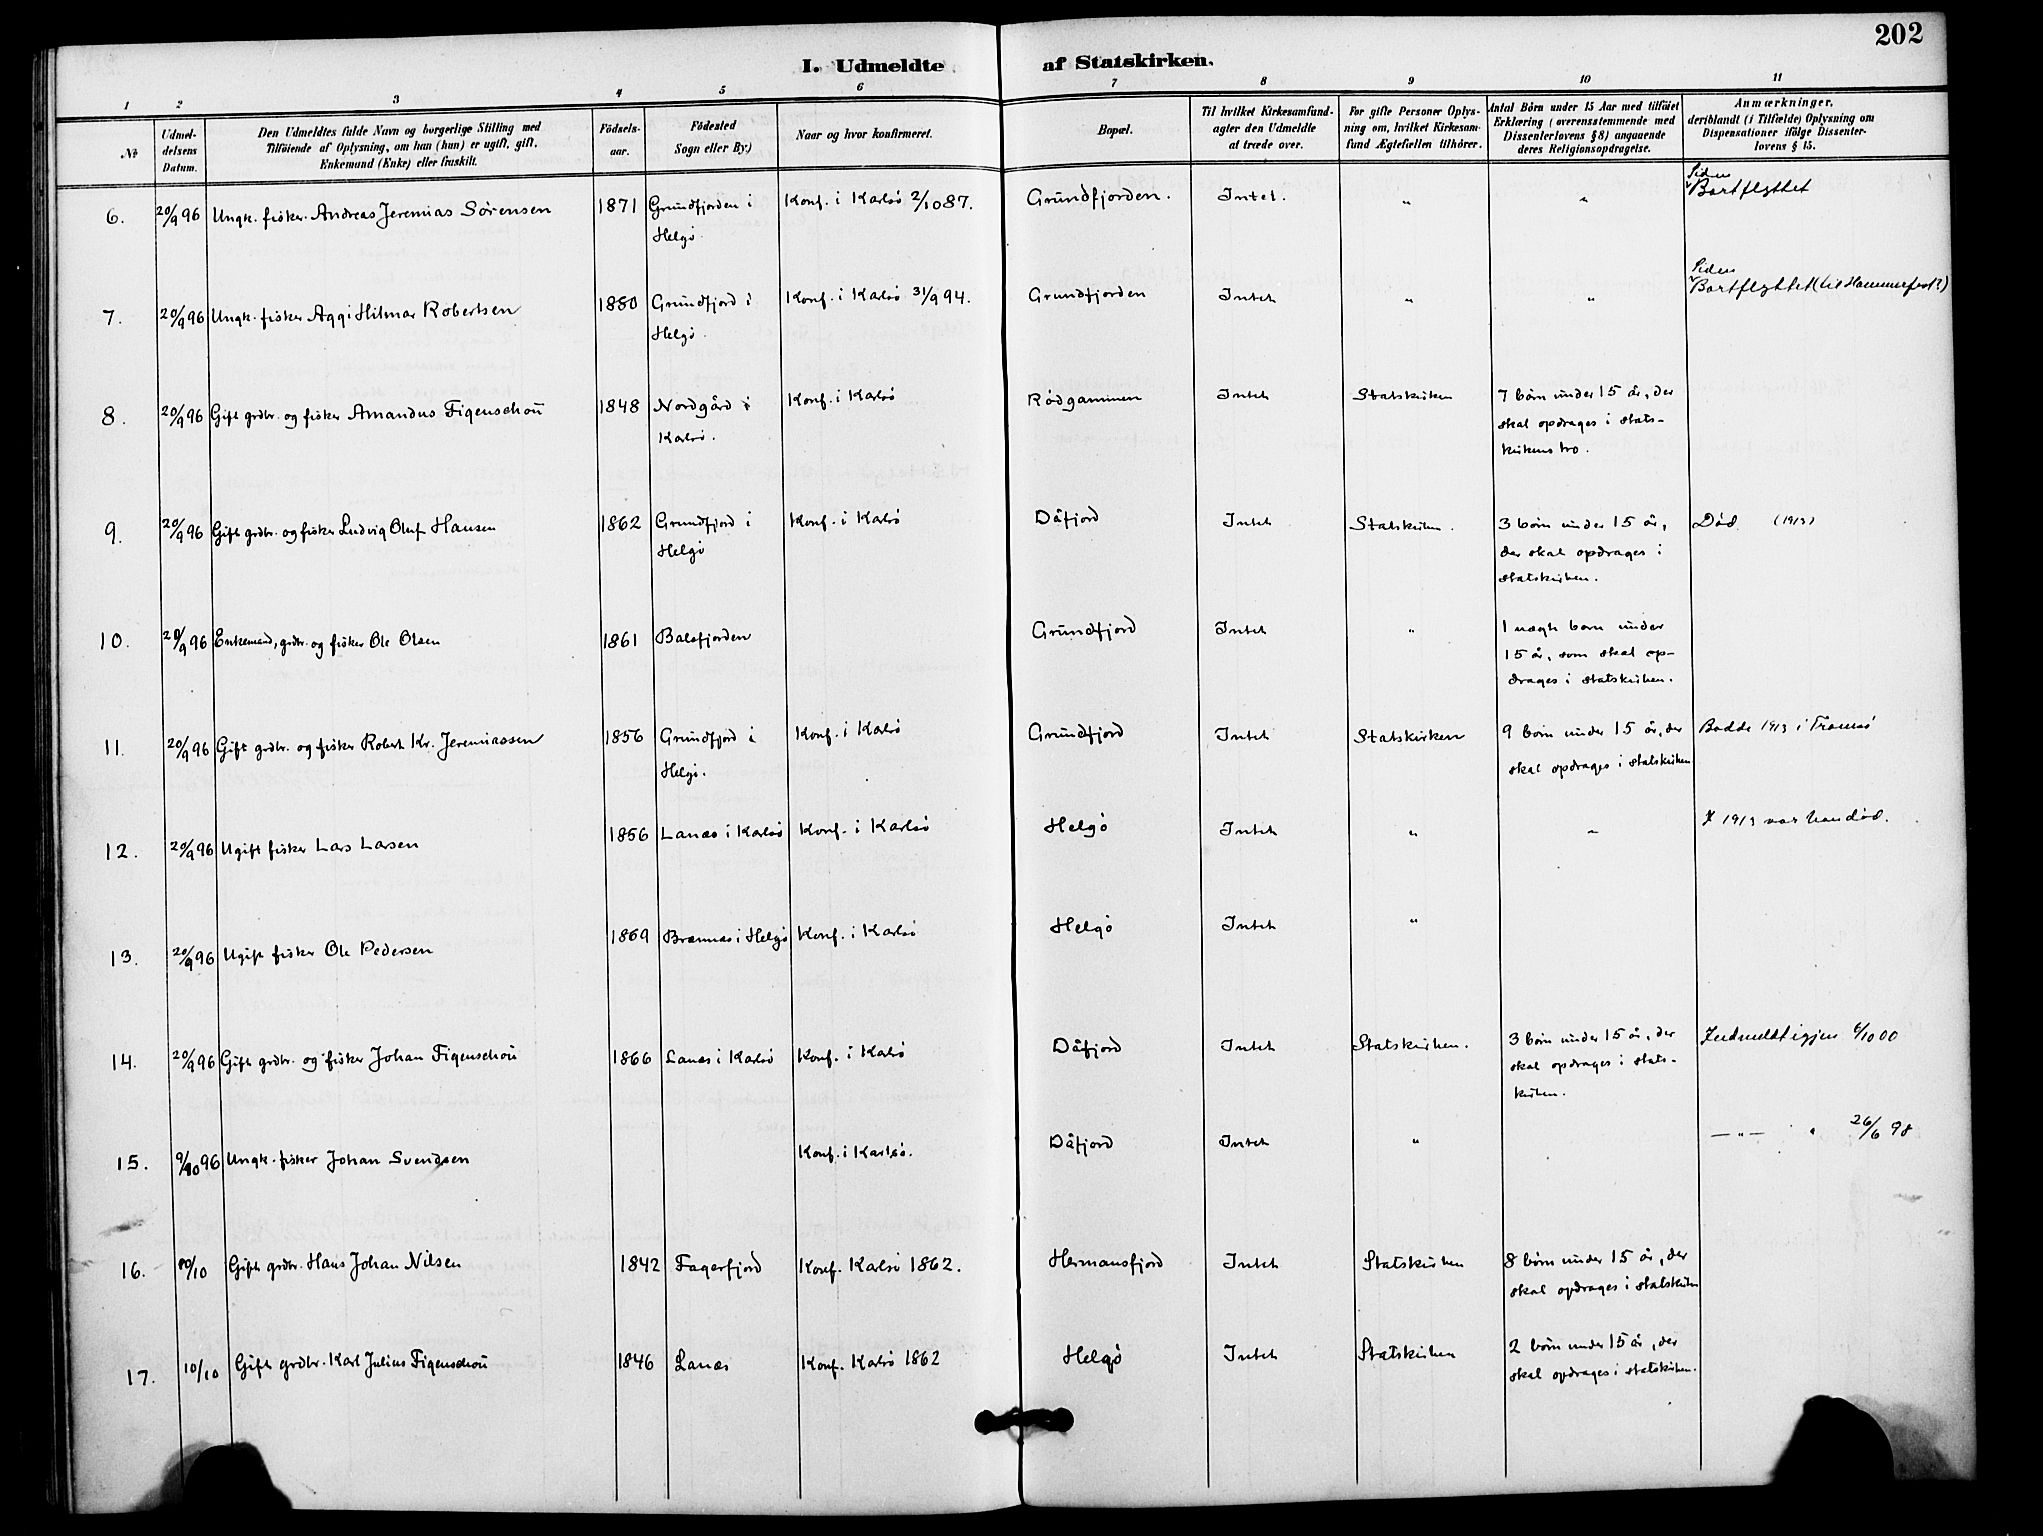 202
I. Udmeldte af Statskirken.
1 2 3 4 5 6 7 8 9 10 11
No
Udmel-
delsens
Datum.
Den Udmeldtes fulde Navn og borgerlige Stilling med
Tilföiende af Oplysning, om han (hun) er ugift, gift,
Enkemand (Enke) eller fraskilt.
Födsels-
aar.
Födested
Sogn eller By.)
Naar og hvor konfirmeret.
Bopæl.
Til hvilket Kirkesamfund-
agter den Udmeldte
at træde over.
For gifte Personer Oplys-
ning om, hvilket Kirkesam-
fund Ægtefællen tilhörer.
Antal Börn under 15 Aar med tilföiet
Erklæring (overensstemmende med
Dissenterlovens § 8) angaaende
deres Religionsopdragelse.
Anmærkninger,
deriblandt (i Tilfælde) Oplysning om
Dispensationer ifölge Dissenter-
lovens § 15.
6. 20/9 96 Ungk. fisker Andreas Jeremias Sørensen 1871 Grundfjorden i Konf. i Karlsö 2/10 87. Grundfjorden. Intet. " " Siden
Helgö. Bortflyttet
7. 20/9 96 Ungk. fisker Aggi Hilmar Robertsen 1880 Grundfjord i Konf. i Karlsö 31/9 94. Grundfjorden Intet " " Siden
Helgö. Bortflyttet (til Hammerfest?)
8. 20/9 96 Gift grdbr. og fisker Amandus Figenschou 1848 Nordgård i Konf. i Karlsö Rødgammen Intet Statskirken 7 børn under 15 år, der
Karlsö. skal opdrages i stats-
kirkens tro.
9. 20/9 96 Gift grdbr. og fisker Ludvig Oluf Hansen 1862 Grundfjord i Konf. i Karlsö Dåfjord Intet Statskirken. 3 børn under 15 år, Död (1913)
Helgö der skal opdrages i
statskirken.
10. 20/9 96 Enkemand, grdbr. og fisker Ole Olsen 1861 Balsfjorden Grundfjord Intet " 1 uægte barn under
15 år, som skal op-
drages i statskirken.
11. 20/9 96 Gift grdbr. og fisker Robert Kr. Jeremiassen 1856 Grundfjord i Konf. i Karlsö Grundfjord Intet Statskirken 9 børn under 15 år, der Bodde 1913 i Tromsö
Helgö. skal opdrages i statskirken
12. 20/9 96 Ugift fisker Lars Larsen 1856 Lanæs i Karlsö Konf. i Karlsö Helgö Intet " " I 1913 var han död.
13. 20/9 96 Ugift fisker Ole Pedersen 1869 Brænnæs i Helgö Konf. i Karlsö Helgö Intet "
14. 20/9 96 Gift grdbr. og fisker Johan Figenschou 1866 Lanæs i Karlsö Konf. i Karlsö Dåfjord Intet Statskirken. 3 børn under 15 år, der Indmeldt igjen 6/10 00
skal opdrages i stats-
kirken.
15. 9/10 96 Ungk. fisker Johan Svendsen Konf. i Karlsö. Dåfjord Intet " — " — " 26/6 98
16. 10/10 Gift grdbr. Hans Johan Nilsen 1842 Fagerfjord Konf. Karlsö 1862. Hermansfjord Intet Statskirken 8 børn under 15 år, der
skal opdrages i statskirken
17. 10/10 Gift grdbr. Karl Julius Figenschou 1846 Lanæs Konf. Karlsö 1862 Helgö Intet Statskirken 2 børn under 15 år, der
skal opdrages i statskirken.